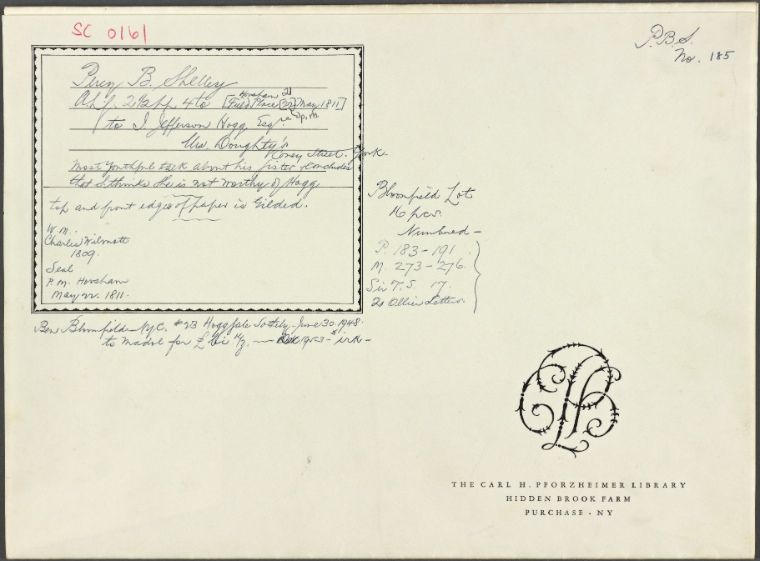 SC 0161
P.B.S.
No. 185
Percy B. Shelley
A.L.S. 2 1/2 pp. 4to [Field Place [22] May 1811]
Horsham 21
(to T. Jefferson Hogg Esq
Mrs. Doughty's
Coney Street. York
Most youthful talk about his sister & concludes
that S. thinks she is not worthy of Hogg
top and front edges of paper is Gilded.
W.M.
Charles Wilmott
1809.
Seal
P.M. Horsham
May 22. 1811.
Bloomfield Lot
16 pcs.
Numbered –
P. 183–191.
M. 273–276.
Sir T.S. 17.
2 Letters
Ben Bloomfield N.Y.C. #23 Hogg Sale Sotheby June 30 1948
to for £
THE CARL H. PFORZHEIMER LIBRARY
HIDDEN BROOK FARM
PURCHASE · NY